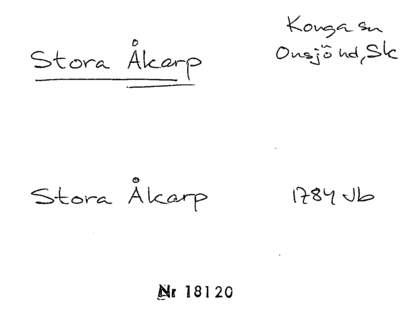 Stora Åkarp
Konga sn
Onsjö hd, Sk
Stora Åkarp
1784 Jb
Nr 18120